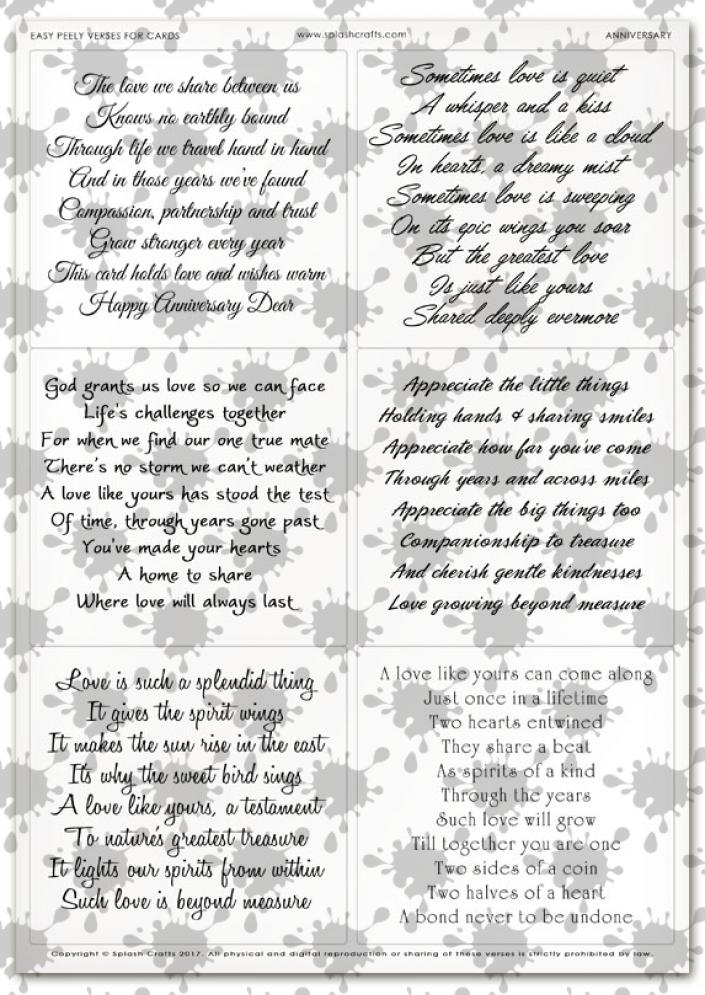 EASY PEELY VERSES FOR CARDS
www.splashcrafts.com
ANNIVERSARY
The love we share between us
Knows no earthly bound
Through life we travel hand in hand
And in those years we've found
Compassion, partnership and trust
Grow stronger every year
This card holds love and wishes warm
Happy Anniversary Dear
Sometimes love is quiet
A whisper and a kiss
Sometimes love is like a cloud
In hearts, a dreamy mist
Sometimes love is sweeping
On its epic wings you soar
But the greatest love
Is just like yours
Shared deeply evermore
God grants us love so we can face
Life's challenges together
For when we find our one true mate
There's no storm we can't weather
A love like yours has stood the test
Of time, through years gone past
You've made your hearts
A home to share
Where love will always last
Appreciate the little things
Holding hands & sharing smiles
Appreciate how far you've come
Through years and across miles
Appreciate the big things too
Companionship to treasure
And cherish gentle kindnesses
Love growing beyond measure
Love is such a splendid thing
It gives the spirit wings
It makes the sun rise in the east
It's why the sweet bird sings
A love like yours, a testament
To nature's greatest treasure
It lights our spirits from within
Such love is beyond measure
A love like yours can come along
Just once in a lifetime
Two hearts entwined
They share a beat
As spirits of a kind
Through the years
Such love will grow
Till together you are one
Two sides of a coin
Two halves of a heart
A bond never to be undone
Copyright © Splash Crafts 2017. All physical and digital reproduction or sharing of these verses is strictly prohibited by law.